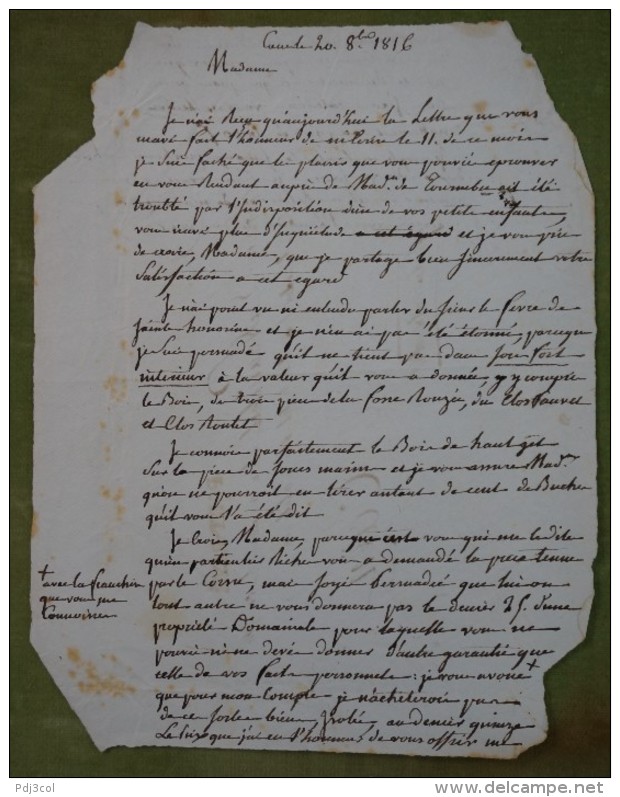 Caen le 20. 8bre 1816
Madame
Je n'ai Recu qu'aujourd'hui la Lettre que vous
mavé fait l'honneur de m'Ecrire le 11. de ce mois
je suis faché que le plaisir que vous pouvié eprouver
en vous Rendant auprès de Mad.me de Tournebu ait été
troublé par l'Indisposition d'une de vos petite enfants,
vous n'avé plus d'Inquiétude a cet égard et je vous prie
de croire, Madame, que je partage bien sincerement votre
satisfaction a cet egard
Je n'ai point vu ni entendu parler du sieur le fevre de
Sainte honorine et je n'en ai pas été étonné, parceque
je suis persuadé qu'il ne tient pas dans son fort
interieur à la valeur qu'il vous a donnée, y compris
le Bois, de trois pieces de la fosse Rouzée, du Clos fauvel
et Clos Routel
Je connois parfaitement le Bois de haut jet
sur la piece de Jones marins et je vous assure Mad.me
qu'on ne pourroit en tirer autant de cent de Buches
qu'il vous l'a été dit
Je crois, Madame, parceque c'est vous qui me le dite
qu'un particulier Riche vous a demandé la piece tenue
par le Cornu, mais soyé Persuadée que lui ou
tout autre ne vous donnera pas le denier 25. d'une
propriété Domaniale pour laquelle vous ne
pouvié ni ne devé donner d'autre garantie que
celle de vos faits personnels : je vous avoue +
que pour mon Compte je n'acheterois pas
de ce sorte bien, isolée, au denier quinze
Le prix que j'ai eu l'honneur de vous offrir me
+ avec la franchise
que vous me
Connoissé
Pdj3col
www.delcampe.net